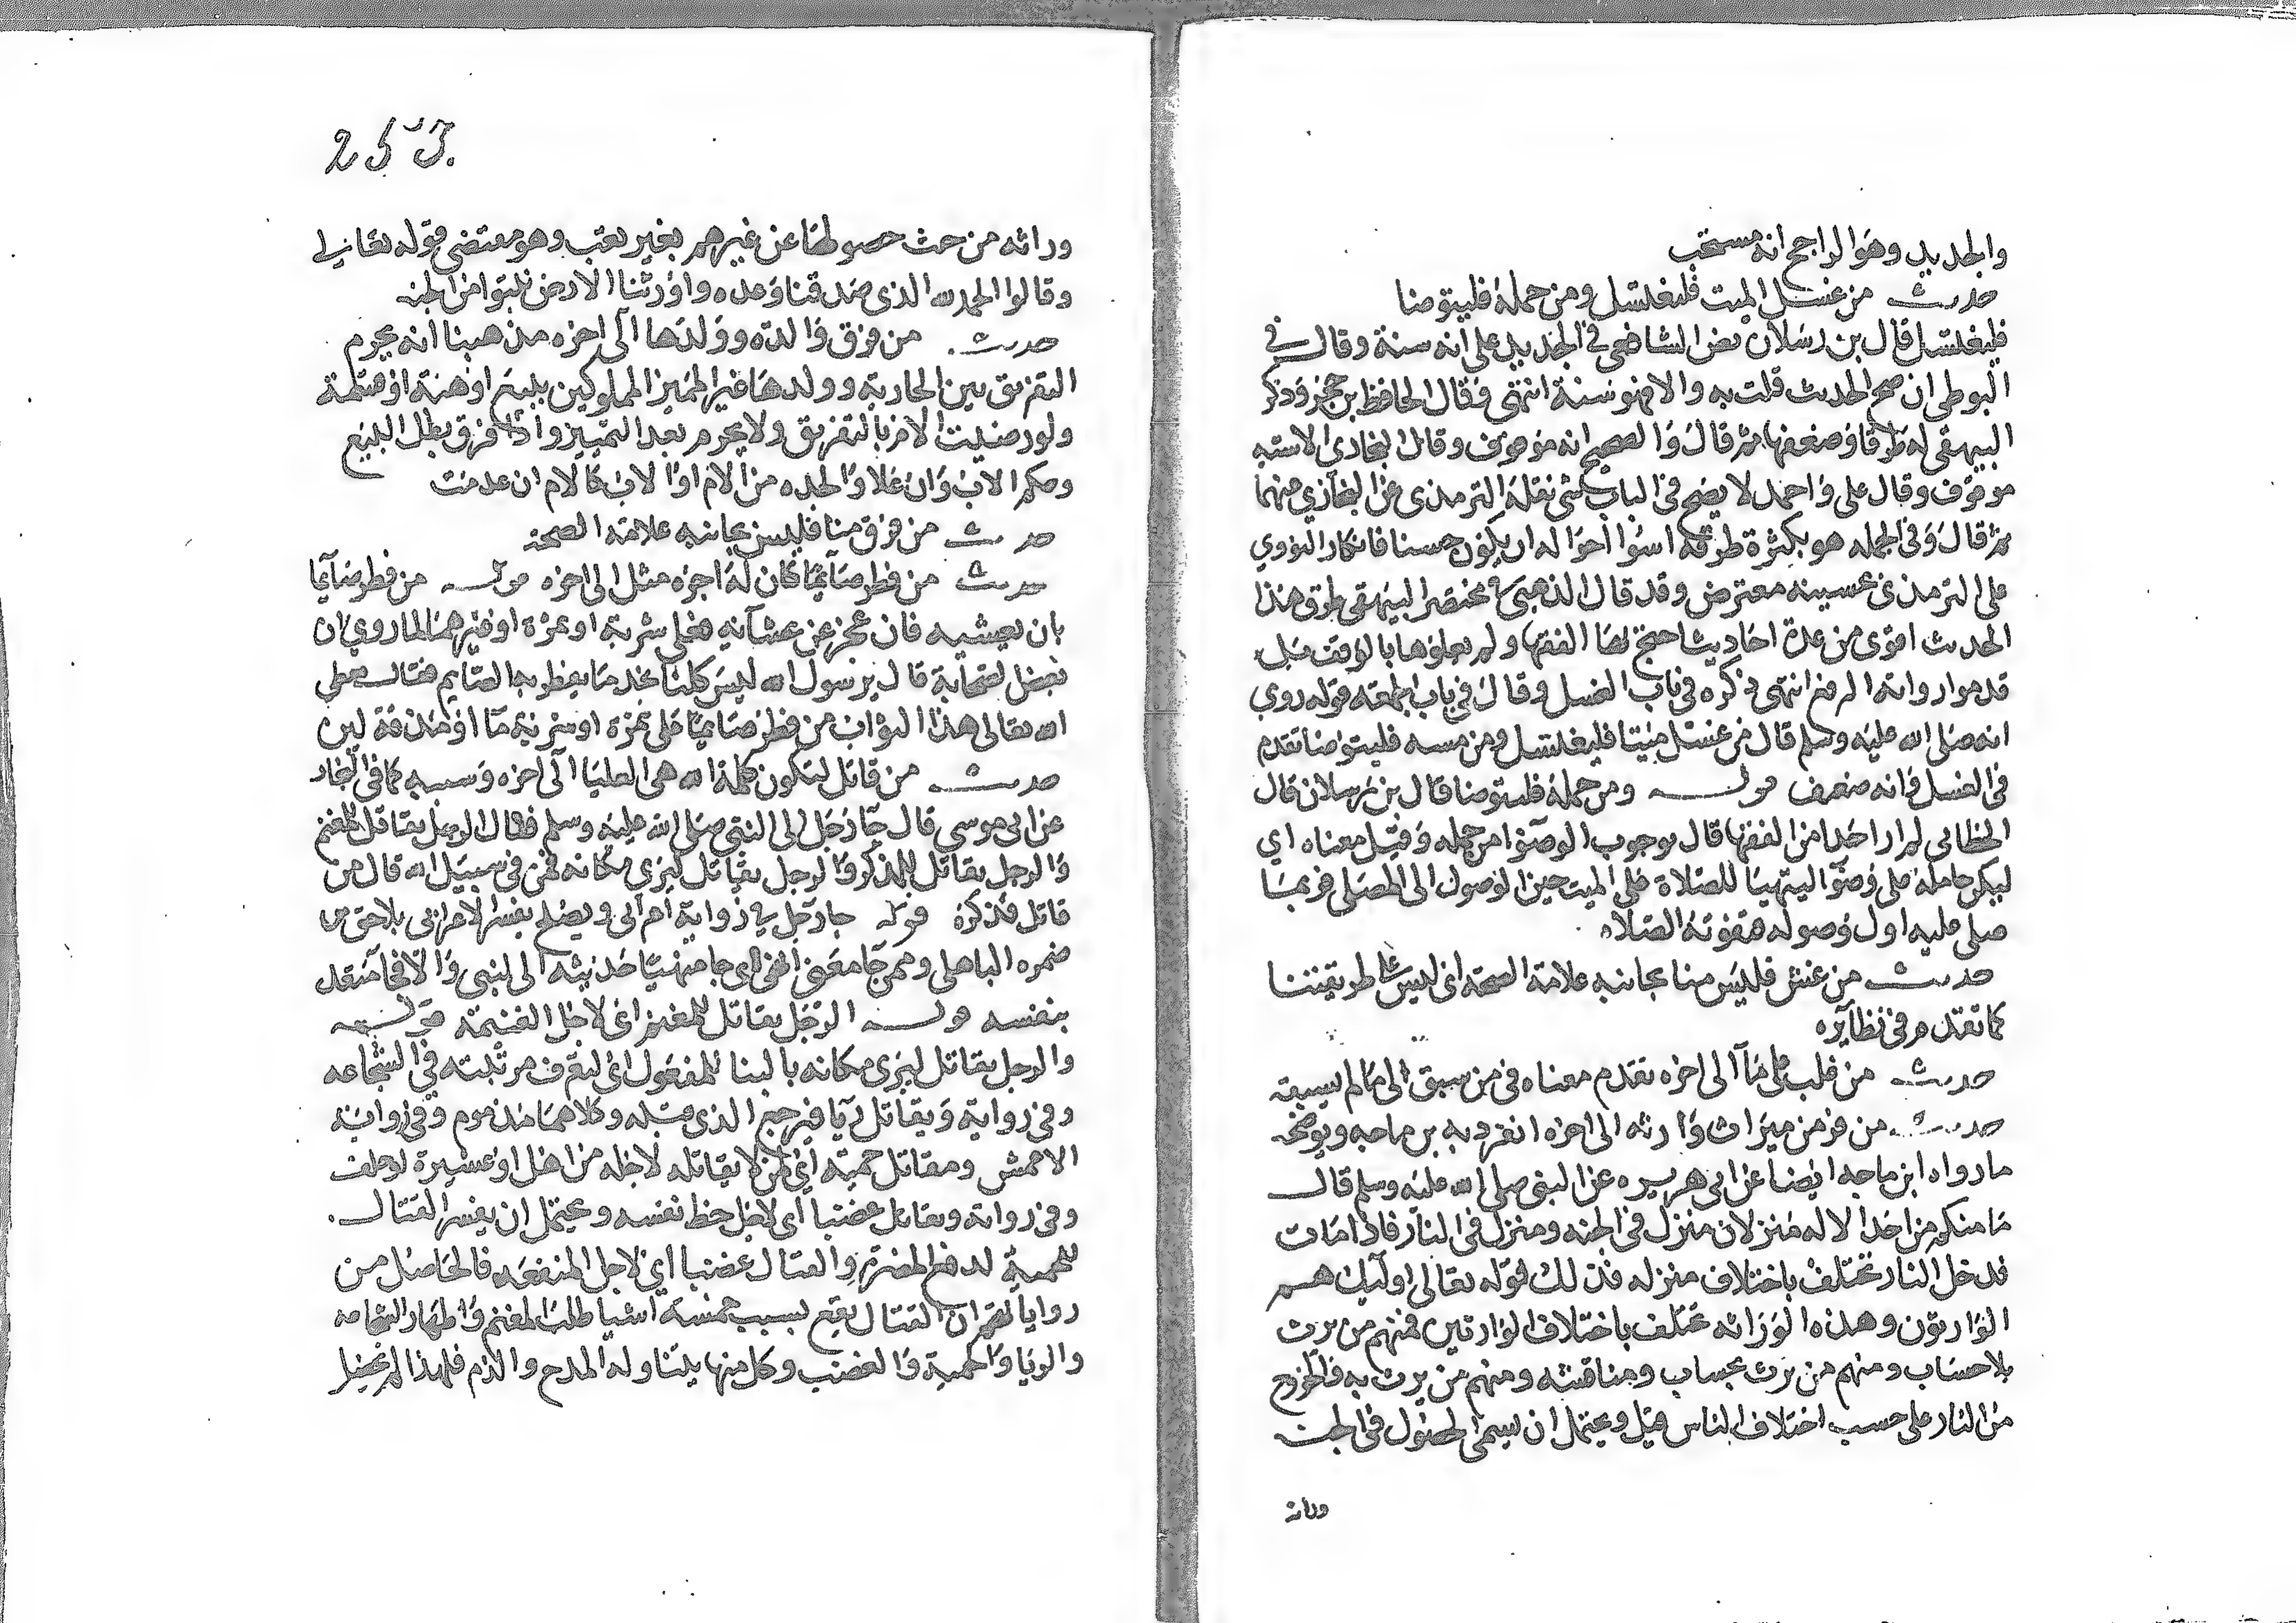 والجديد وهو الراجح انه مستحب
حديث من غسل الميت فليغتسل ومن حمله فليتوضا
فليغتسل قال بن رسلان نص الشافعي في الجديد على انه سنة وقال في
البوطي ان صح الحديث قلت به والا فهو سنة انتهى فقال الحافظ بن حجر وذكر
البيهقي له طرقا وضعفها ثم قال والصحيح انه موقوف وقال البخاري الاشبه
موقوف وقال علي واحمد لا يصح في الباب شي نقله الترمذي عن البخاري عنهما
ثم قال وفي الجمله هو بكثرة طرقه اسوا احواله ان يكون حسنا فانكار النووي
على الترمذي تحسينه معترض وقد قال الذهبي في مختصر البيهقي طرق هذا
الحديث اقوى من عدة احاديث احتج بها الفقها ولم يعلوها بالوقف بل
قدموا رواية الرفع انتهى ذكره في باب الغسل وقال في باب الجمعه قوله روي
انه صلى الله عليه وسلم قال من غسل ميتا فليغتسل ومن مسه فليتوضا تقدم
في الغسل وانه ضعيف قوله ومن حمله فليتوضا قال بن رسلان قال
الخطابي لم ار احدا من الفقها قال بوجوب الوضوا من حمله وقيل معناه اي
ليكن حامله على وضوا ليتهيا للصلاة على الميت حين الوصول الى المصلى فربما
صلى عليه اول وصوله فتفوته الصلاه
حديث من غش فليس منا بجانبه علامة الصحة اي ليس على طريقتنا
كما تقدم في نظايره
حديث من غلب على ما الى اخره تقدم معناه في من سبق الى ما لم يسبقه
حديث من فر من ميراث وارثه الى اخره انفرد به بن ماجه ويوضحه
ما رواه ابن ماجه ايضا عن ابي هريره عن النبي صلى الله عليه وسلم قال
ما منكم من احد الا له منزلان منزل في الجنه ومنزل في النار فاذا مات
فدخل النار تختلف باختلاف منزله فذلك قوله تعالى اوليك هم
الوارثون وهذه الوراثه تختلف باختلاف الوارثين فمنهم من يرث
بلا حساب ومنهم من يرث بحساب ومناقشه ومنهم من يرث به والخروج
من النار على حسب اختلاف الناس قيل ويحتمل ان يسمى الحصول في الجنة
وراثه
255
وراثه من حيث حصولها عن غيرهم بغير تعب وهو مقتضى قوله تعالى
وقالوا الحمد لله الذي صدقنا وعده واورثنا الارض نتبوا من الجنه
حديث من فرق والدة وولدها الى اخره مذهبنا انه يحرم
التفريق بين الجارية وولدها غير المميز المملوكين ببيع او هبة او قسمة
ولو رضيت الام بالتفريق ولا يحرم بعد التمييز واذا فرق بطل البيع
وحكم الاب وان علا والجده من الام او الاب كالام ان عدمت
حديث من فرق منا فليس بجانبه علامة الصحة
حديث من فطر صآئما كان له اجره مثل الى اخره قوله من فطر صآيما
بان يعشيه فان عجز عن عشآئه فعلى شربة او تمرة او غيرهما لما روي ان
بعض الصحابة قال يرسول الله ليس كلنا يجد ما يفطر به الصايم فقال يعطي
الله تعالى هذا الثواب من فطر صايما على تمرة او شربة ما او مذقة لبن
حديث من قاتل لتكون كلمة الله هي العليا الى اخره وسببه كما في البخار
عن ابي موسى قال جا رجل الى النبي صلى الله عليه وسلم فقال الرجل يقاتل للمغنم
والرجل يقاتل للذكر والرجل يقاتل ليرى مكانه فمن في سبيل الله قال من
قاتل فذكره قوله جا رجل في رواية اعرابي ويصلح يفسر الاعرابي بلاحق بن
ضمره الباهلي
بنفسه قوله الرجل يقاتل للمغنم اي لاجل الغنيمة قوله
والرجل يقاتل ليرى مكانه بالبنا للمفعول اي ليعرف مرتبته في الشجاعه
وفي رواية ويقاتل ريا فمرجع الذي قبله وكلاهما مذموم وفي رواية
الاعمش ويقاتل حمية اي لمن لا يقاتله لاجله من اهل او عشيرة او حلف
وفي رواية ويقاتل غضبا اي لاجل حظ نفسه ويحتمل ان يفسر القتال
للحمية لدفع المضرة والقتال غضبا اي لاجل المنفعه فالحاصل من
رواياتهم ان القتال يقع بسبب خمسة اشيا طلب المغنم واظهار الشجاعه
والريا والحمية والغضب وكل منها يتناوله المدح والذم فلهذا لم يحصل